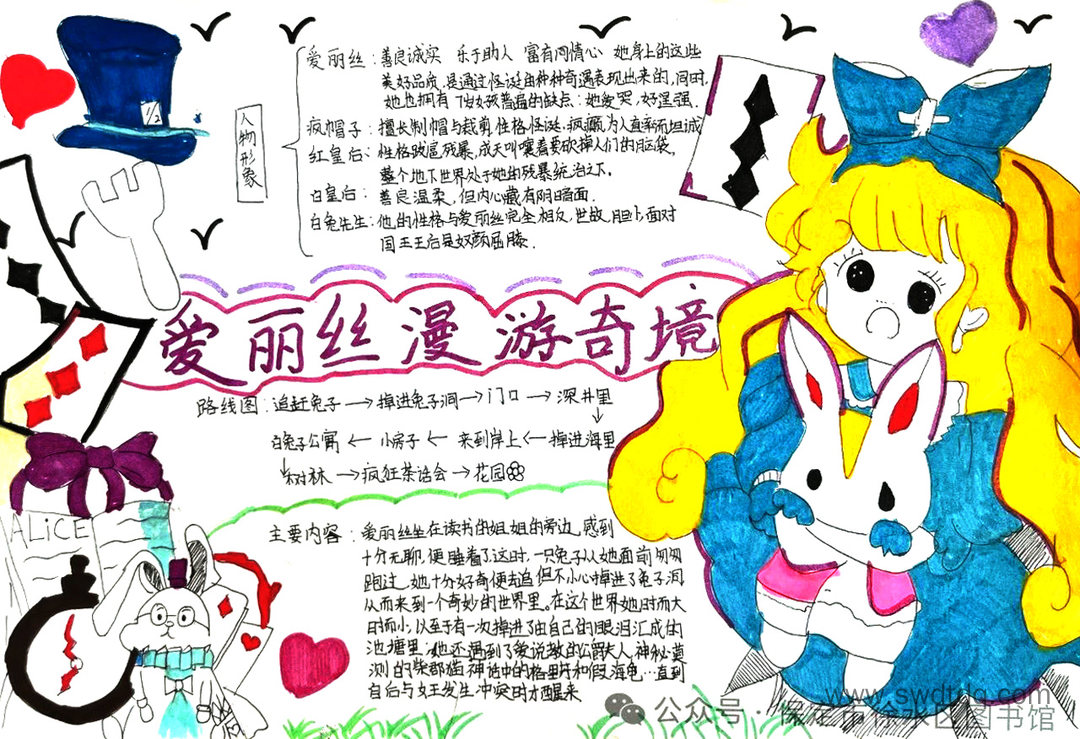 人物形象
爱丽丝：善良诚实 乐于助人 富有同情心 她身上的这些
美好品质，是通过怪诞由种种奇遇表现出来的，同时，
她也拥有7岁女孩普遍的缺点：她爱哭，好逞强．
疯帽子：擅长制帽与裁剪，性格怪诞，疯癫，为人直率而坦诚
红皇后：性格跋扈残暴，成天叫嚷着要砍掉人们的脑袋，
整个地下世界处于她的残暴统治之下．
白皇后：善良温柔，但内心藏有阴暗面．
白兔先生：他的性格与爱丽丝完全相反，世故，胆小，面对
国王王后是奴颜屈膝．
爱丽丝漫游奇境
路线图：追赶兔子→掉进兔子洞→门口→深井里
白兔子公寓←小房子←来到岸上←掉进海里
树林→疯狂茶话会→花园
主要内容：爱丽丝坐在读书的姐姐的旁边，感到
十分无聊，便睡着了，这时，一只兔子从她面前匆匆
跑过，她十分好奇便去追，但不小心掉进了兔子洞
从而来到一个奇妙的世界里。在这个世界她，时而大
时而小，以至于有一次掉进了由自己的眼泪汇成的
池塘里；她还遇到了爱说教的公爵夫人，神秘莫
测的柴郡猫，神话中的格里芬和假海龟…直到
自后与女王发生冲突时才醒来
ALiCE
1/2
www.swdtdq.com
公众号·保定市徐水区图书馆